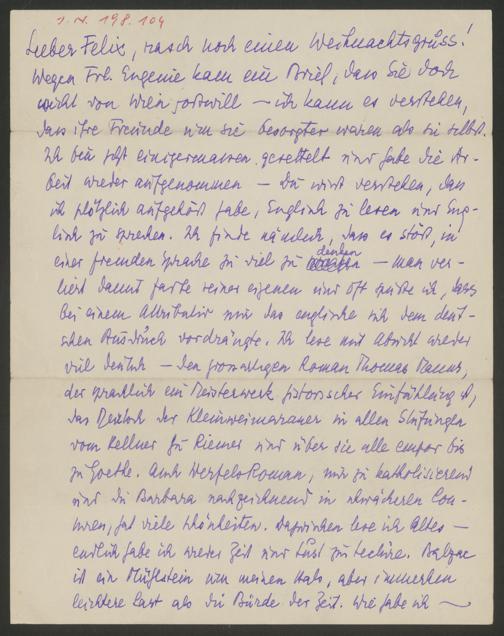 I. N. 198.104
Lieber Felix, rasch noch einen Weihnachtsgruss!
Wegen Frl. Eugenie kam ein Brief, dass sie doch
nicht von Wien fortwill – ich kann es verstehen,
dass ihre Freunde um sie besorgter waren als sie selbst.
Ich bin jetzt einigermassen gerettelt und habe die Ar-
beit wieder aufgenommen – Du wirst verstehen, dass
ich plötzlich aufgehört habe, Englisch zu lesen und Eng-
lisch zu sprechen. Ich finde nämlich, dass es stört, in
einer fremden Sprache zu viel zu denken – man ver-
liert damit Farbe seiner eigenen und oft spüre ich, dass
bei einem Attribut mir das englische sich dem deut-
schen Ausdruck vordrängte. Ich lese mit Absicht wieder
viel deutsch – den grossartigen Roman Thomas Manns,
der sprachlich ein Meisterwerk historischer Einfühlung ist,
das Deutsch der Kleinweimaraner in allen Stufungen
vom Kellner zu Riemer und über sie alle empor bis
zu Goethe. Auch Werfels Roman, mir zu katholisierend
und die Barbara nachzeichnend in schwächeren Con-
turen, hat viele Schönheiten. Dazwischen lese ich Altes –
endlich habe ich wieder Zeit und Lust zu Lectüre. Balzac
ist ein Mühlstein um meinen Hals, aber immerhin
leichtere Last als die Bürde der Zeit. Wie habe ich –